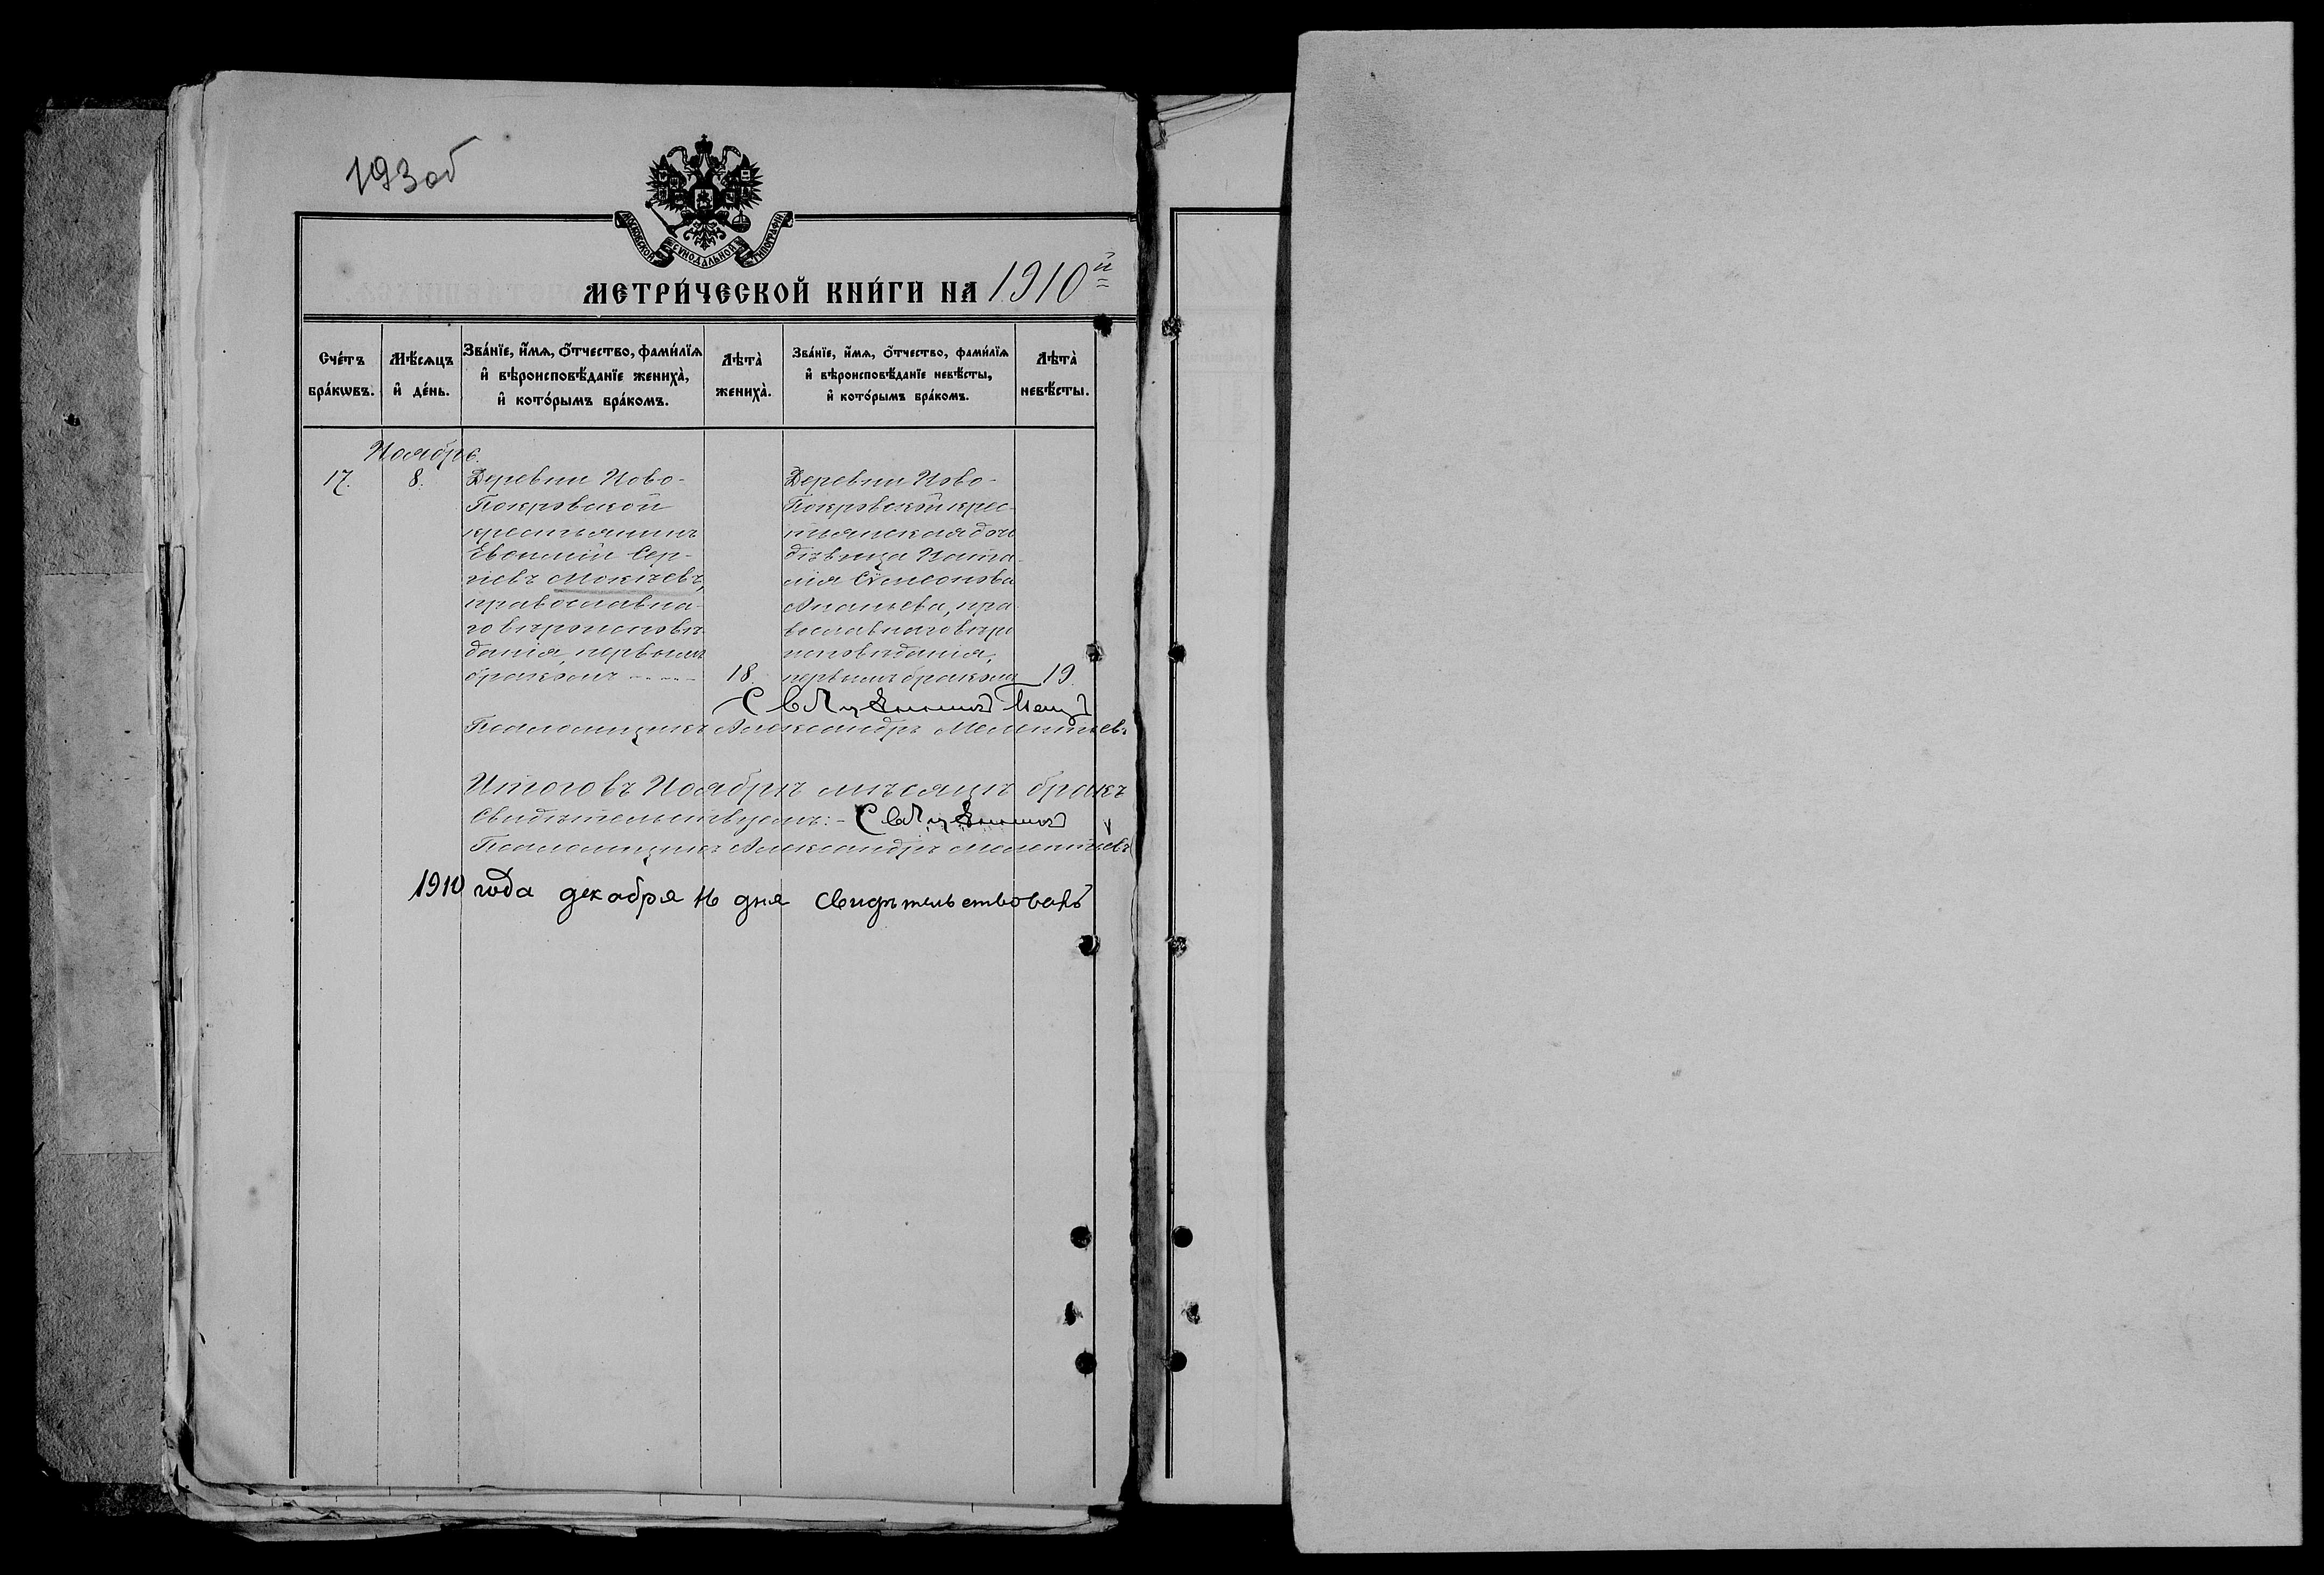 193 об
МОСКОВСКОЙ СѴНОДАЛЬНОЙ ТИПОГРАФІИ
МЕТРИ́ЧЕСКОЙ КНИ́ГИ НА 1910й
Сче́тъ бра́кѡвъ.
Мѣ́сѧцъ и҆ де́нь.
Зва́нїе, и҆́мѧ, ѻ҆́тчество, фами́лїѧ
и҆ вѣроисповѣ́данїе жениха̀,
и҆ кото́рымъ бра́комъ.
Лѣта̀ жениха̀.
Зва́нїе, и҆́мѧ, ѻ҆́тчество, фами́лїѧ
и҆ вѣроисповѣ́данїе невѣ́сты,
и҆ кото́рымъ бра́комъ.
Лѣта̀ невѣ́сты.
Ноябрь.
17.
8.
Деревни Ново-
Покровской
крестьянинъ
Евѳимій Сер-
гіевъ Мокѣевъ,
православна-
го вѣроисповѣ-
данія, первымъ
бракомъ
18.
Деревни Ново-
Покровской крес-
тьянская дочь
дѣвица Ната-
лія Сѵмеонова
Ананьева, пра-
вославнаго вѣро
исповѣданія,
первымъ бракомъ
19.
Священникъ
Псаломщикъ Александръ Мелентьевъ
Итого въ Ноябрѣ мѣсяцѣ бракъ
Свидѣтельствуемъ:- Священникъ
Псаломщикъ Александръ Мелентьевъ
1910 года декабря 16 дня свидѣтельствовалъ